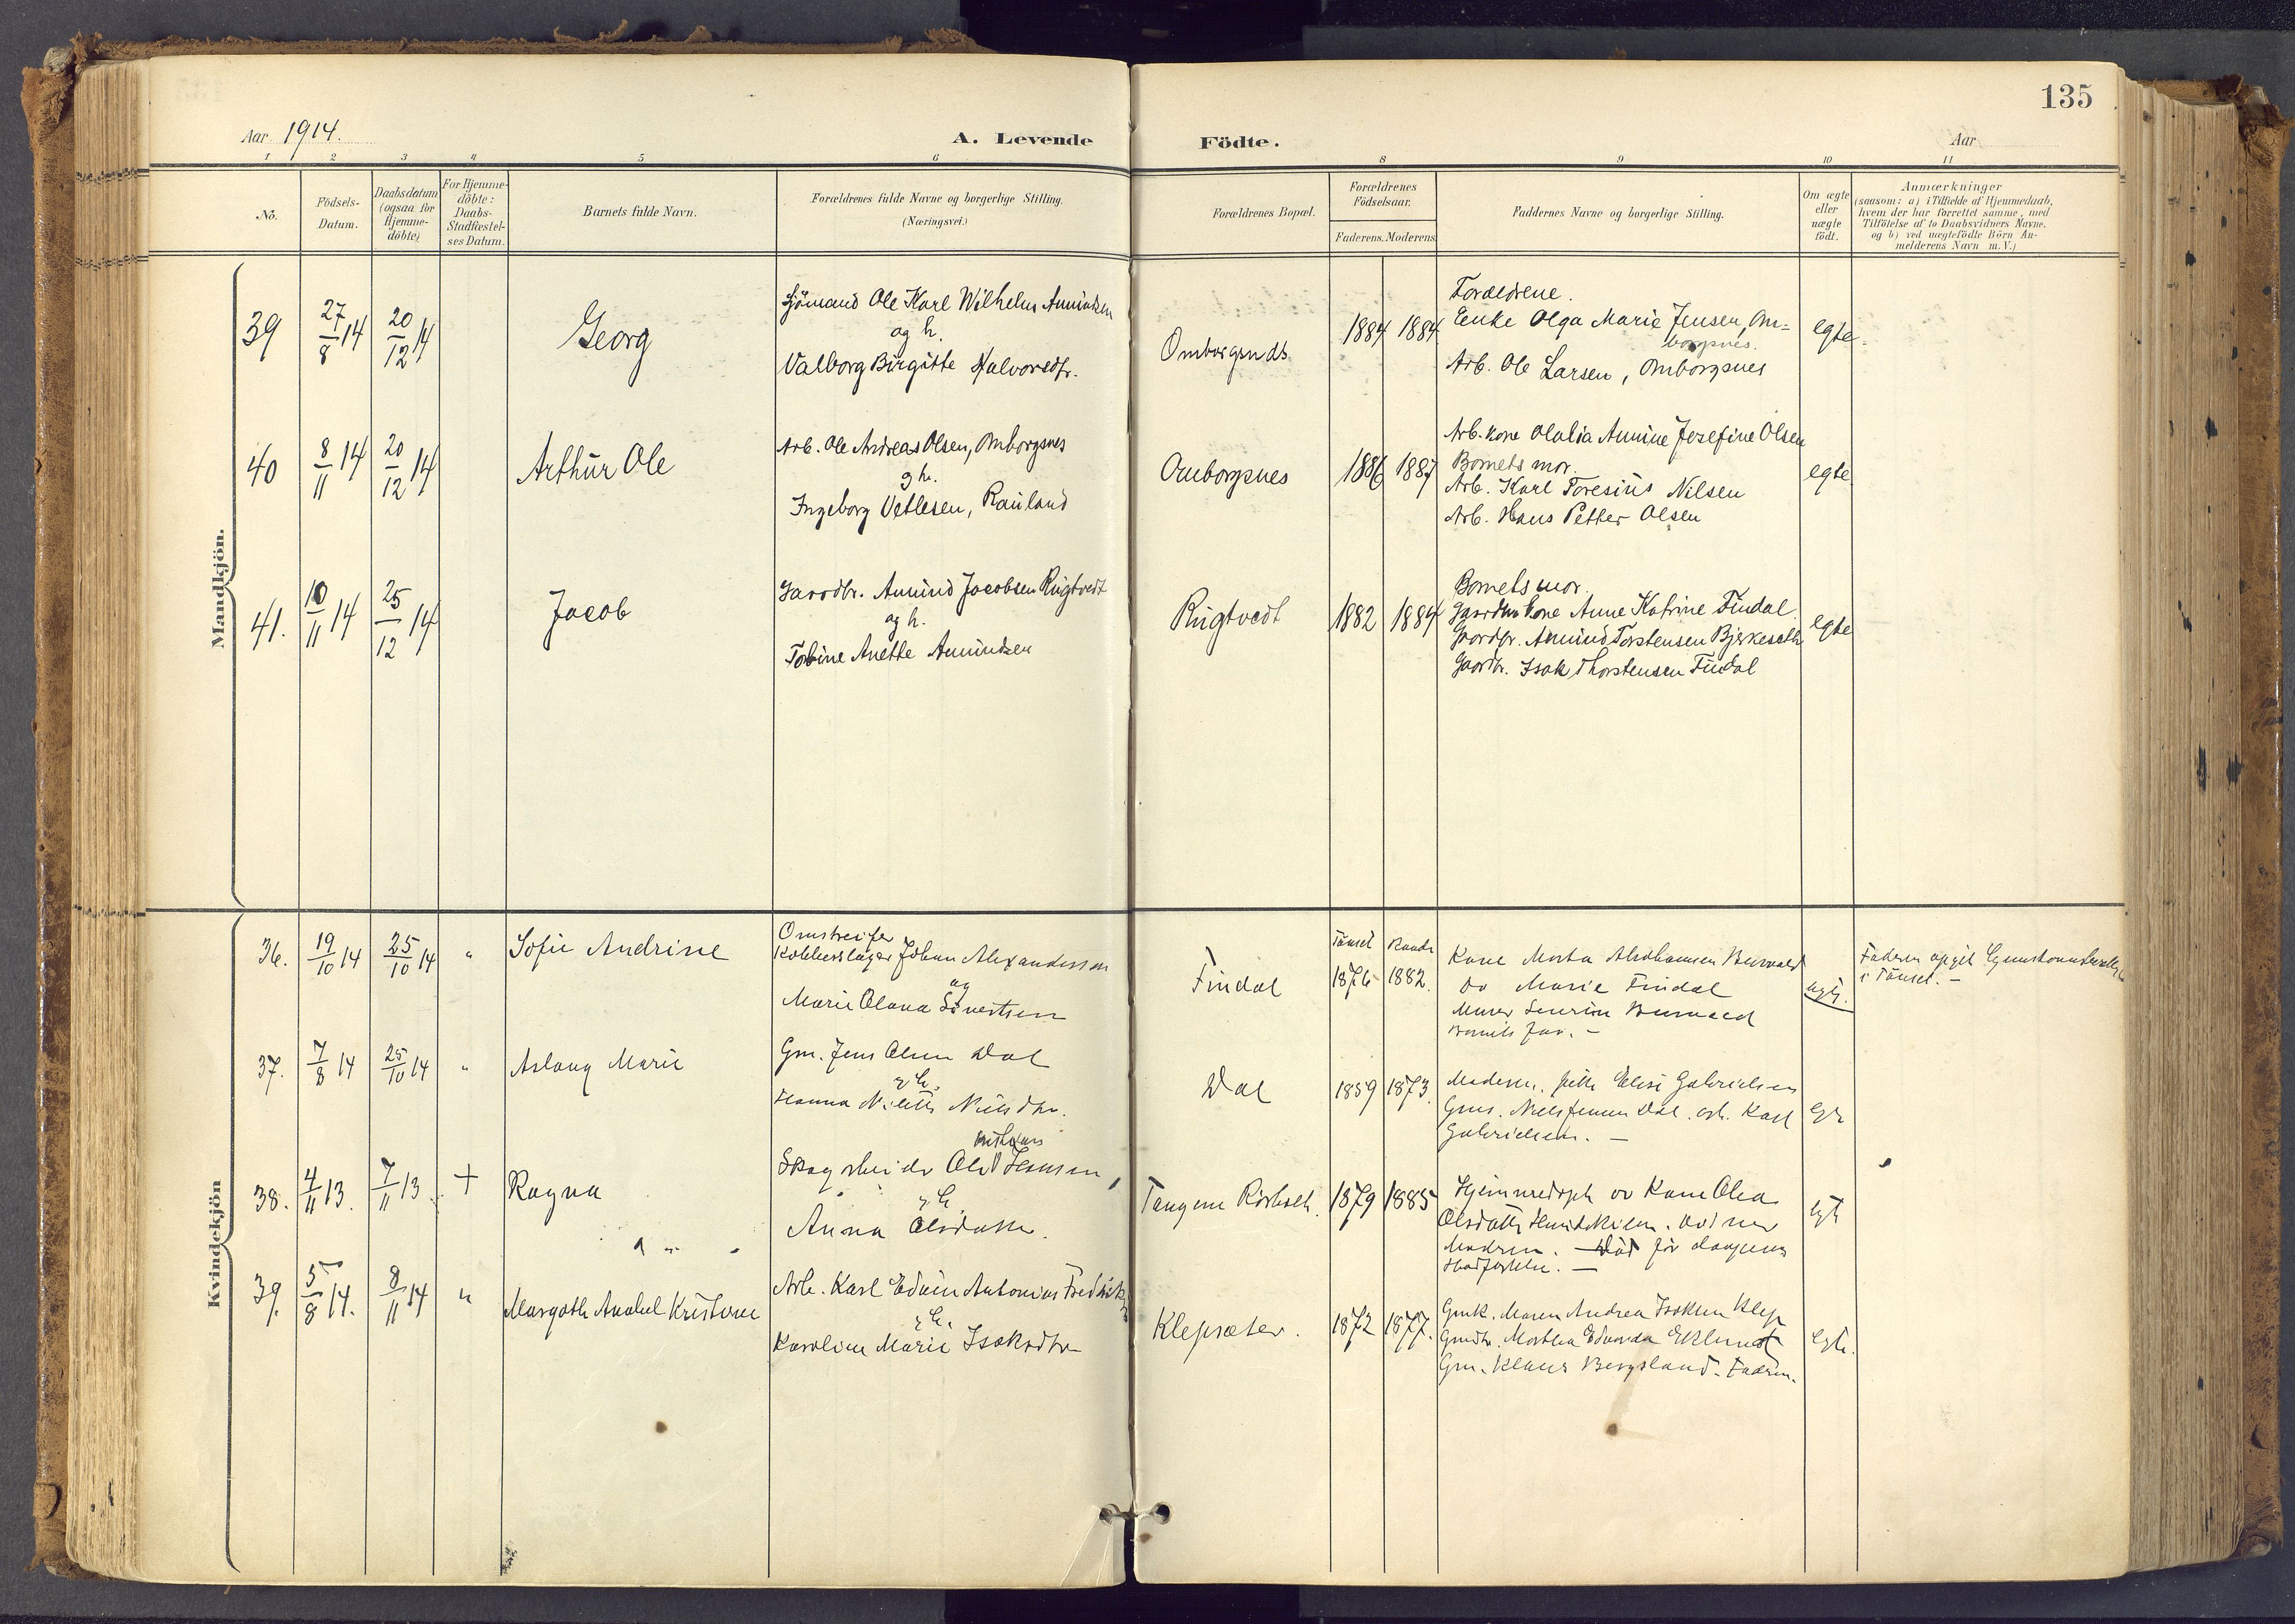 135
Aar 1914.
A. Levende
Födte.
Aar
1 2 3 4 5 6 8 9 10 11
No.
Födsels-
Datum.
Daabsdatum
(ogsaa for
Hjemme-
döbte)
For Hjemme-
döbte:
Daabs-
Stadfæstel-
ses Datum.
Barnets fulde Navn.
Forældrenes fulde Navne og borgerlige Stilling.
(Næringsvei.)
Forældrenes Bopæl.
Forældrenes
Födselsaar.
Faderens. Moderens.
Faddernes Navne og borgerlige Stilling.
Om ægte
eller
uægte
födt.
Anmærkninger
(saasom: a) i Tilfælde af Hjemmedaab,
hvem der har forrettet samme, med
Tilföielse af to Daabsvidners Navne.
og b) ved uægtefödte Börn An-
melderens Navn m.V.)
Mandkjön.
39
27/8 14
20/12 14
Georg
Sjömand Ole Karl Wilhelm Amundsen
og h.
Valborg Birgitte Halvorsdtr.
Omborgsnds
1884 1884
Foreldrene.
Enke Olga Marie Jensen, Om=
borgsnes.
Arb. Ole Larsen, Omborgsnes
egte
40
8/11 14
20/12 14
Arthur Ole
Arb. Ole Andreas Olsen, Omborgsnes
g h.
Ingeborg Vetlesen, Rauland
Omborgsnes
1886 1887
Arb. kone Olalia Annine Jozefine Olsen
Barnets mor.
Arb. Karl Toresius Nilsen
Arb. Hans Petter Olsen
egte
41.
10/11 14
25/12 14
Jacob
Gaardbr. Amund Jacobsen Rugtvedt
og h.
Tobine Anette Amundsen
Rugtvedt
1882 1884
Barnets mor.
Gaardbr. kone Anne Katrine Findal
Gaardbr. Amund Torstensen Bjerkeseth
Gaardbr. Isak Thorstensen Findal
egte
Kvindekjön
36.
19/10 14
25/10 14
"
Sofie Andrine
Omstreifer
Kobberslager Johan Alexandersson
og
Marie Olava Sivertsen
Findal
Tönset
1876 1882.
Kone Marta Abrahamsen
ov Marie Findal
Murer
Barnets far. -
uegte.
Faderen opgit
i Tönset. -
37.
7/8 14
25/10 14
"
Aslaug Marie
Gm. Jens Olsen Dal
g h.
Hanna Nilsdtr.
Dal
1859 1873.
Moderen. Elise Gabrielsen
Gms. Niels Jensen Dal. arb. Karl
Gabrielsen. -
egte
38.
4/11 13.
7/11 13.
+
Ragna
Skogarbeider Ole Hansen,
g h.
Anna Olsdatter.
1879 1885
Olea
Olsdatter
Modren. - Död för daapens
stadfestelse. -
egte
39.
5/8 14.
8/11 14
"
Margoth Anabel Kristine
Arb. Karl Edvin Antonius Fredrik
g h.
Karoline Marie Isaksdtr
Klepsæter.
1872 1877.
Gmk. Maren Andrea Isaksen Klep
Gmdtr. Martha Edvarda Eklund
Gm. Klaus Bergsland. Fadren.
egte.